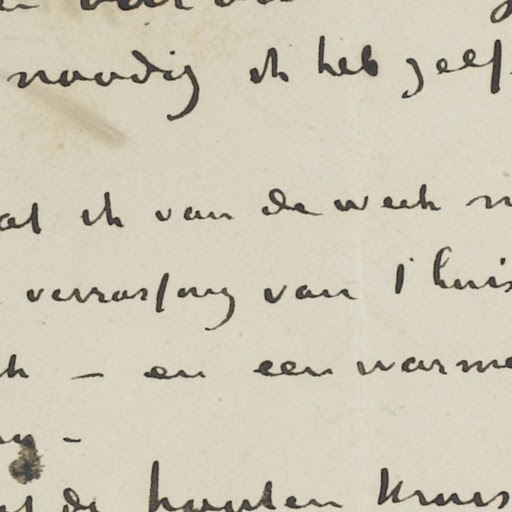 noodig ik heb zelf
at ik van de week
verrassing van 't huis
ik – en een warme
de houten kruis